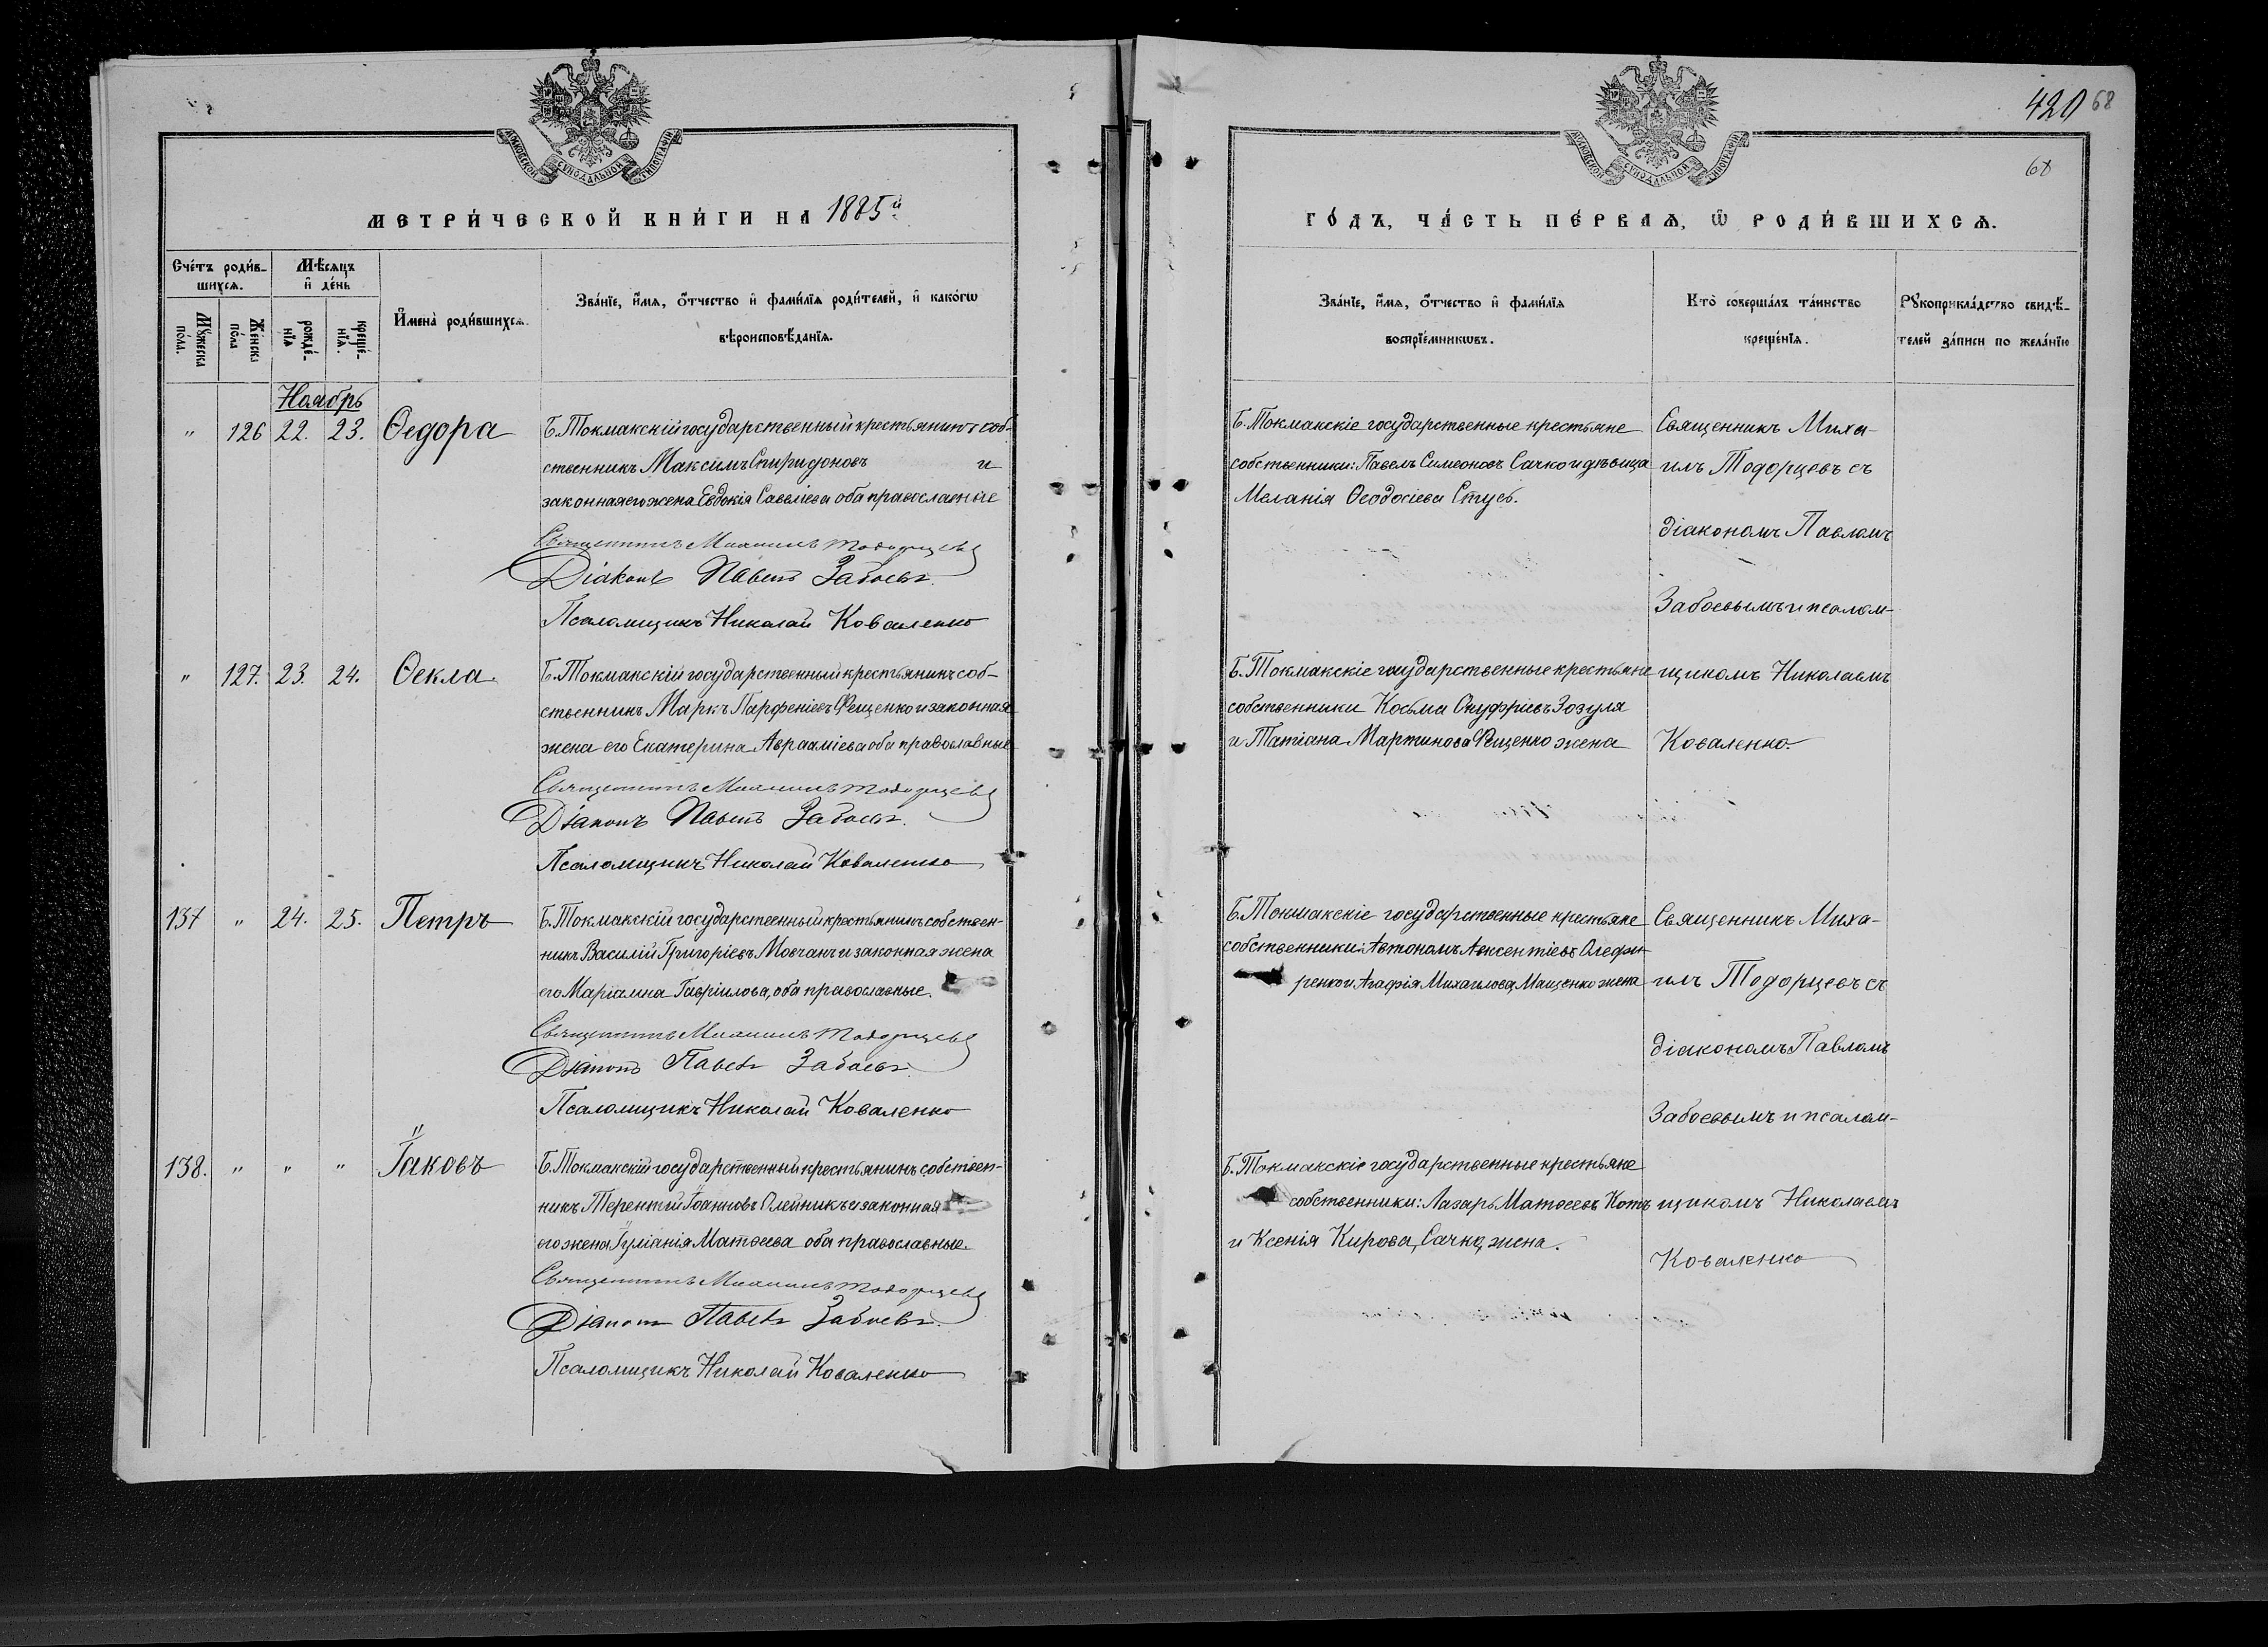 МОСКОВСКОЙ СѴНОДАЛЬНОЙ ТИПОГРАФІИ
МЕТРИ́ЧЕСКОЙ КНИ́ГИ НА 1885й
Сче́тъ роди́в-
шихсѧ.
Мѣ́сѧцъ
и҆ де́нь
Мꙋ́жеска
по́ла.
Же́нска
по́ла
рожде́-
нїѧ
креще́-
нїѧ.
И҆мена̀ роди́вшихсѧ.
Зва́нїе, и҆́мѧ, ѻ҆́тчество и҆ фами́лїѧ роди́телей, и҆ како́гѡ
вѣроисповѣ́данїѧ.
Ноябрь
" 126 22. 23. Ѳедора
Б. Токмакскій государственный крестьянинъ соб-
ственникъ Максимъ Спиридоновъ и
законная его жена Евдокія Савеліева оба православные
Священникъ Михаилъ Тодорцевъ
Діаконъ Павелъ Забоевъ.
Псаломщикъ Николай Коваленко
" 127. 23. 24. Ѳекла.
Б. Токмакскій государственный крестьянинъ соб-
ственникъ Маркъ Парфеніевъ Фещенко и законная
жена его Екатерина Авраамiева оба православные
Священникъ Михаилъ Тодорцевъ
Діаконъ Павелъ Забоевъ.
Псаломщикъ Николай Коваленко
137 " 24. 25. Петръ
Б. Токмакскій государственный крестьянинъ собствен-
никъ Василій Григоріевъ Мовчанъ и законная жена
его Маріамна Гавріилова, оба православные.
Священникъ Михаилъ Тодорцевъ
Діаконъ Павелъ Забоевъ.
Псаломщикъ Николай Коваленко
138. " " " Іаковъ
Б. Токмакскій государственный крестьянинъ собствен-
никъ Терентій Іоанновъ Олейникъ и законная
его жена Іуліанія Матѳеева оба православные.
Священникъ Михаилъ Тодорцевъ
Діаконъ Павелъ Забоевъ.
Псаломщикъ Николай Коваленко
420 68
68
МОСКОВСКОЙ СѴНОДАЛЬНОЙ ТИПОГРАФІИ
ГО́ДЪ, ЧА́СТЬ ПЕ́РВАѦ, Ѿ РОДИ́ВШИХСѦ.
Зва́нїе, и҆́мѧ, ѻ҆́тчество и҆ фами́лїѧ
воспрїе́мникѡвъ.
Кто̀ соверша́лъ та́инство
креще́нїѧ.
Рꙋкоприкла́дство свидѣ́-
телей за́писи по жела́нїю
Б. Токмакскіе государственные крестьяне
собственники: Павелъ Симеоновъ Сачко и дѣвица
Меланія Ѳеодосіева Стусъ.
Священникъ Миха-
илъ Тодорцевъ съ
діакономъ Павломъ
Забоевымъ и псалом-
щикомъ Николаемъ
Коваленко
Б. Токмакскіе государственные крестьяне
собственники Косьма Онуфріевъ Зозуля
и Татіана Мартинова Фещенко жена
Б. Токмакскіе государственные крестьяне
собственники: Автономъ Авксентіевъ Олефи-
ренко и Агафія Михаилова, Мащенко жена
Священникъ Миха-
илъ Тодорцевъ съ
діакономъ Павломъ
Забоевымъ и псалом-
щикомъ Николаемъ
Коваленко
Б. Токмакскіе государственные крестьяне
собственники: Лазарь Матѳеевъ Котъ
и Ксенія Кирова, Сачко, жена.